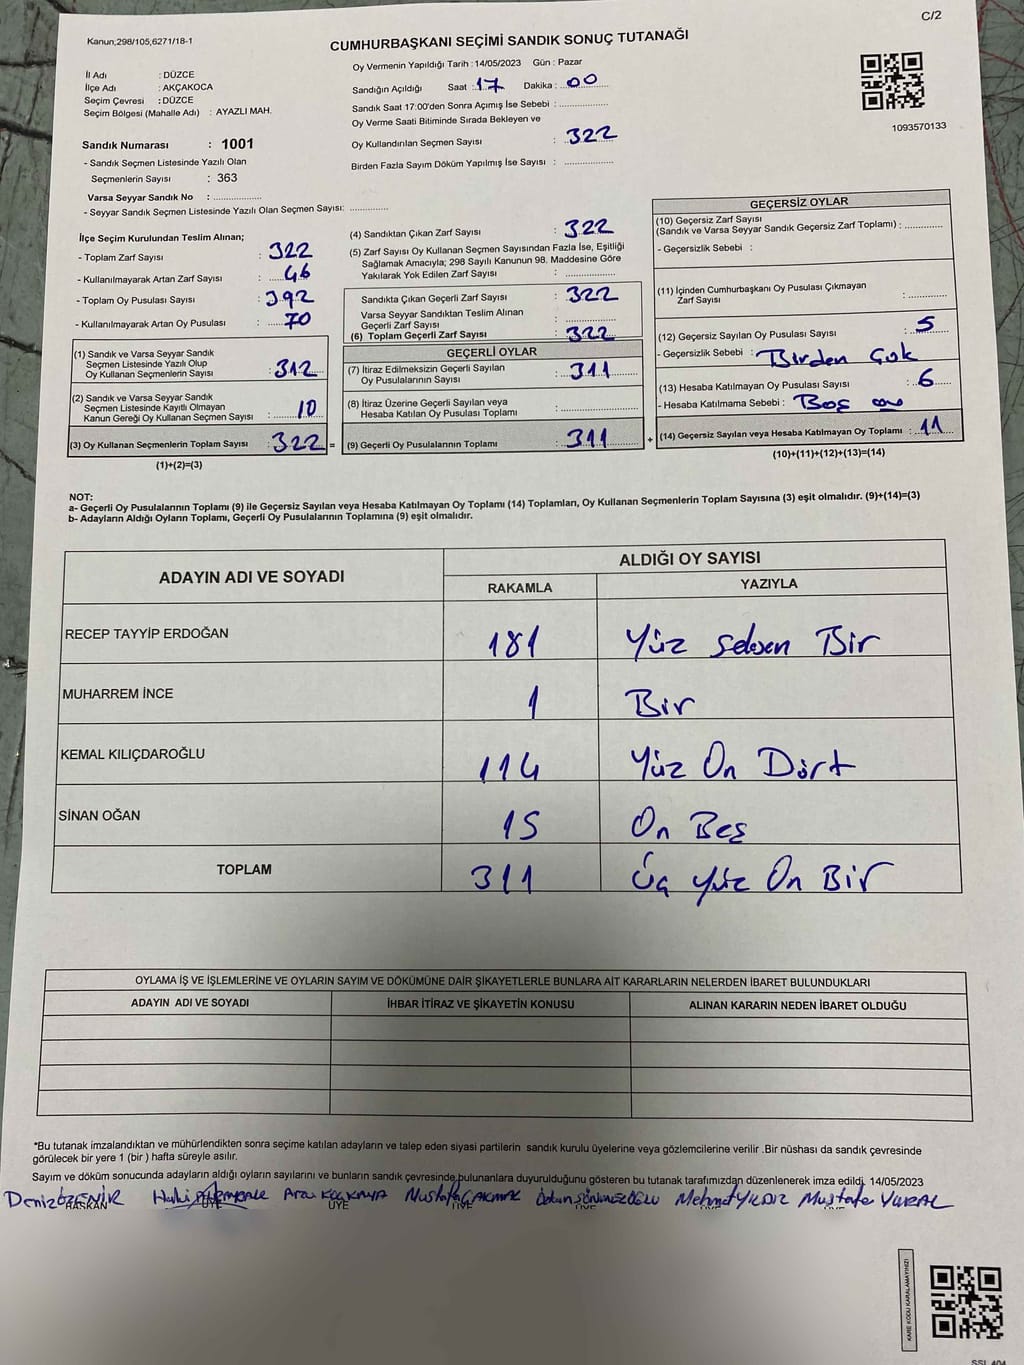 C/2
Kanun;298/105,6271/18-1
CUMHURBAŞKANI SEÇİMİ SANDIK SONUÇ TUTANAĞI
İl Adı : DÜZCE
İlçe Adı : AKÇAKOCA
Seçim Çevresi : DÜZCE
Seçim Bölgesi (Mahalle Adı) : AYAZLI MAH.
Sandık Numarası : 1001
- Sandık Seçmen Listesinde Yazılı Olan
Seçmenlerin Sayısı : 363
Varsa Seyyar Sandık No : ................
- Seyyar Sandık Seçmen Listesinde Yazılı Olan Seçmen Sayısı: .............
Oy Vermenin Yapıldığı Tarih : 14/05/2023 Gün : Pazar
Sandığın Açıldığı Saat : 17 Dakika : 00
Sandık Saat 17:00'den Sonra Açımış İse Sebebi : ................
Oy Verme Saati Bitiminde Sırada Bekleyen ve
Oy Kullandırılan Seçmen Sayısı : 322
Birden Fazla Sayım Döküm Yapılmış İse Sayısı : ................
1093570133
İlçe Seçim Kurulundan Teslim Alınan;
- Toplam Zarf Sayısı : 322
- Kullanılmayarak Artan Zarf Sayısı : 46
- Toplam Oy Pusulası Sayısı : 392
- Kullanılmayarak Artan Oy Pusulası : 70
(1) Sandık ve Varsa Seyyar Sandık
Seçmen Listesinde Yazılı Olup
Oy Kullanan Seçmenlerin Sayısı : 312
(2) Sandık ve Varsa Seyyar Sandık
Seçmen Listesinde Kayıtlı Olmayan
Kanun Gereği Oy Kullanan Seçmen Sayısı : 10
(3) Oy Kullanan Seçmenlerin Toplam Sayısı : 322 =
(1)+(2)=(3)
(4) Sandıktan Çıkan Zarf Sayısı : 322
(5) Zarf Sayısı Oy Kullanan Seçmen Sayısından Fazla İse, Eşitliği
Sağlamak Amacıyla; 298 Sayılı Kanunun 98. Maddesine Göre
Yakılarak Yok Edilen Zarf Sayısı : ................
Sandıkta Çıkan Geçerli Zarf Sayısı : 322
Varsa Seyyar Sandıktan Teslim Alınan
Geçerli Zarf Sayısı : ................
(6) Toplam Geçerli Zarf Sayısı : 322
GEÇERLİ OYLAR
(7) İtiraz Edilmeksizin Geçerli Sayılan
Oy Pusulalarının Sayısı : 311
(8) İtiraz Üzerine Geçerli Sayılan veya
Hesaba Katılan Oy Pusulası Toplamı : ................
(9) Geçerli Oy Pusulalarının Toplamı : 311 +
GEÇERSİZ OYLAR
(10) Geçersiz Zarf Sayısı
(Sandık ve Varsa Seyyar Sandık Geçersiz Zarf Toplamı) : .............
- Geçersizlik Sebebi :
(11) İçinden Cumhurbaşkanı Oy Pusulası Çıkmayan
Zarf Sayısı : .............
(12) Geçersiz Sayılan Oy Pusulası Sayısı : 5
- Geçersizlik Sebebi : Birden Çok
(13) Hesaba Katılmayan Oy Pusulası Sayısı : 6
- Hesaba Katılmama Sebebi : Boş
(14) Geçersiz Sayılan veya Hesaba Katılmayan Oy Toplamı : 11
(10)+(11)+(12)+(13)=(14)
NOT:
a- Geçerli Oy Pusulalarının Toplamı (9) ile Geçersiz Sayılan veya Hesaba Katılmayan Oy Toplamı (14) Toplamları, Oy Kullanan Seçmenlerin Toplam Sayısına (3) eşit olmalıdır. (9)+(14)=(3)
b- Adayların Aldığı Oyların Toplamı, Geçerli Oy Pusulalarının Toplamına (9) eşit olmalıdır.
ADAYIN ADI VE SOYADI
ALDIĞI OY SAYISI
RAKAMLA YAZIYLA
RECEP TAYYİP ERDOĞAN 181 Yüz Seksen Bir
MUHARREM İNCE 1 Bir
KEMAL KILIÇDAROĞLU 114 Yüz On Dört
SİNAN OĞAN 15 On Beş
TOPLAM 311 Üç yüz On Bir
OYLAMA İŞ VE İŞLEMLERİNE VE OYLARIN SAYIM VE DÖKÜMÜNE DAİR ŞİKAYETLERLE BUNLARA AİT KARARLARIN NELERDEN İBARET BULUNDUKLARI
ADAYIN ADI VE SOYADI İHBAR İTİRAZ VE ŞİKAYETİN KONUSU ALINAN KARARIN NEDEN İBARET OLDUĞU
*Bu tutanak imzalandıktan ve mühürlendikten sonra seçime katılan adayların ve talep eden siyasi partilerin sandık kurulu üyelerine veya gözlemcilerine verilir .Bir nüshası da sandık çevresinde
görülecek bir yere 1 (bir ) hafta süreyle asılır.
Sayım ve döküm sonucunda adayların aldığı oyların sayılarını ve bunların sandık çevresinde bulunanlara duyurulduğunu gösteren bu tutanak tarafımızdan düzenlenerek imza edildi. 14/05/2023
Deniz ÖZENİR Mustafa ÇAKMAK Mehmet YILDIZ Mustafa VURAL
BAŞKAN ÜYE ÜYE ÜYE ÜYE
KARE KODU KARALAMAYINIZ!